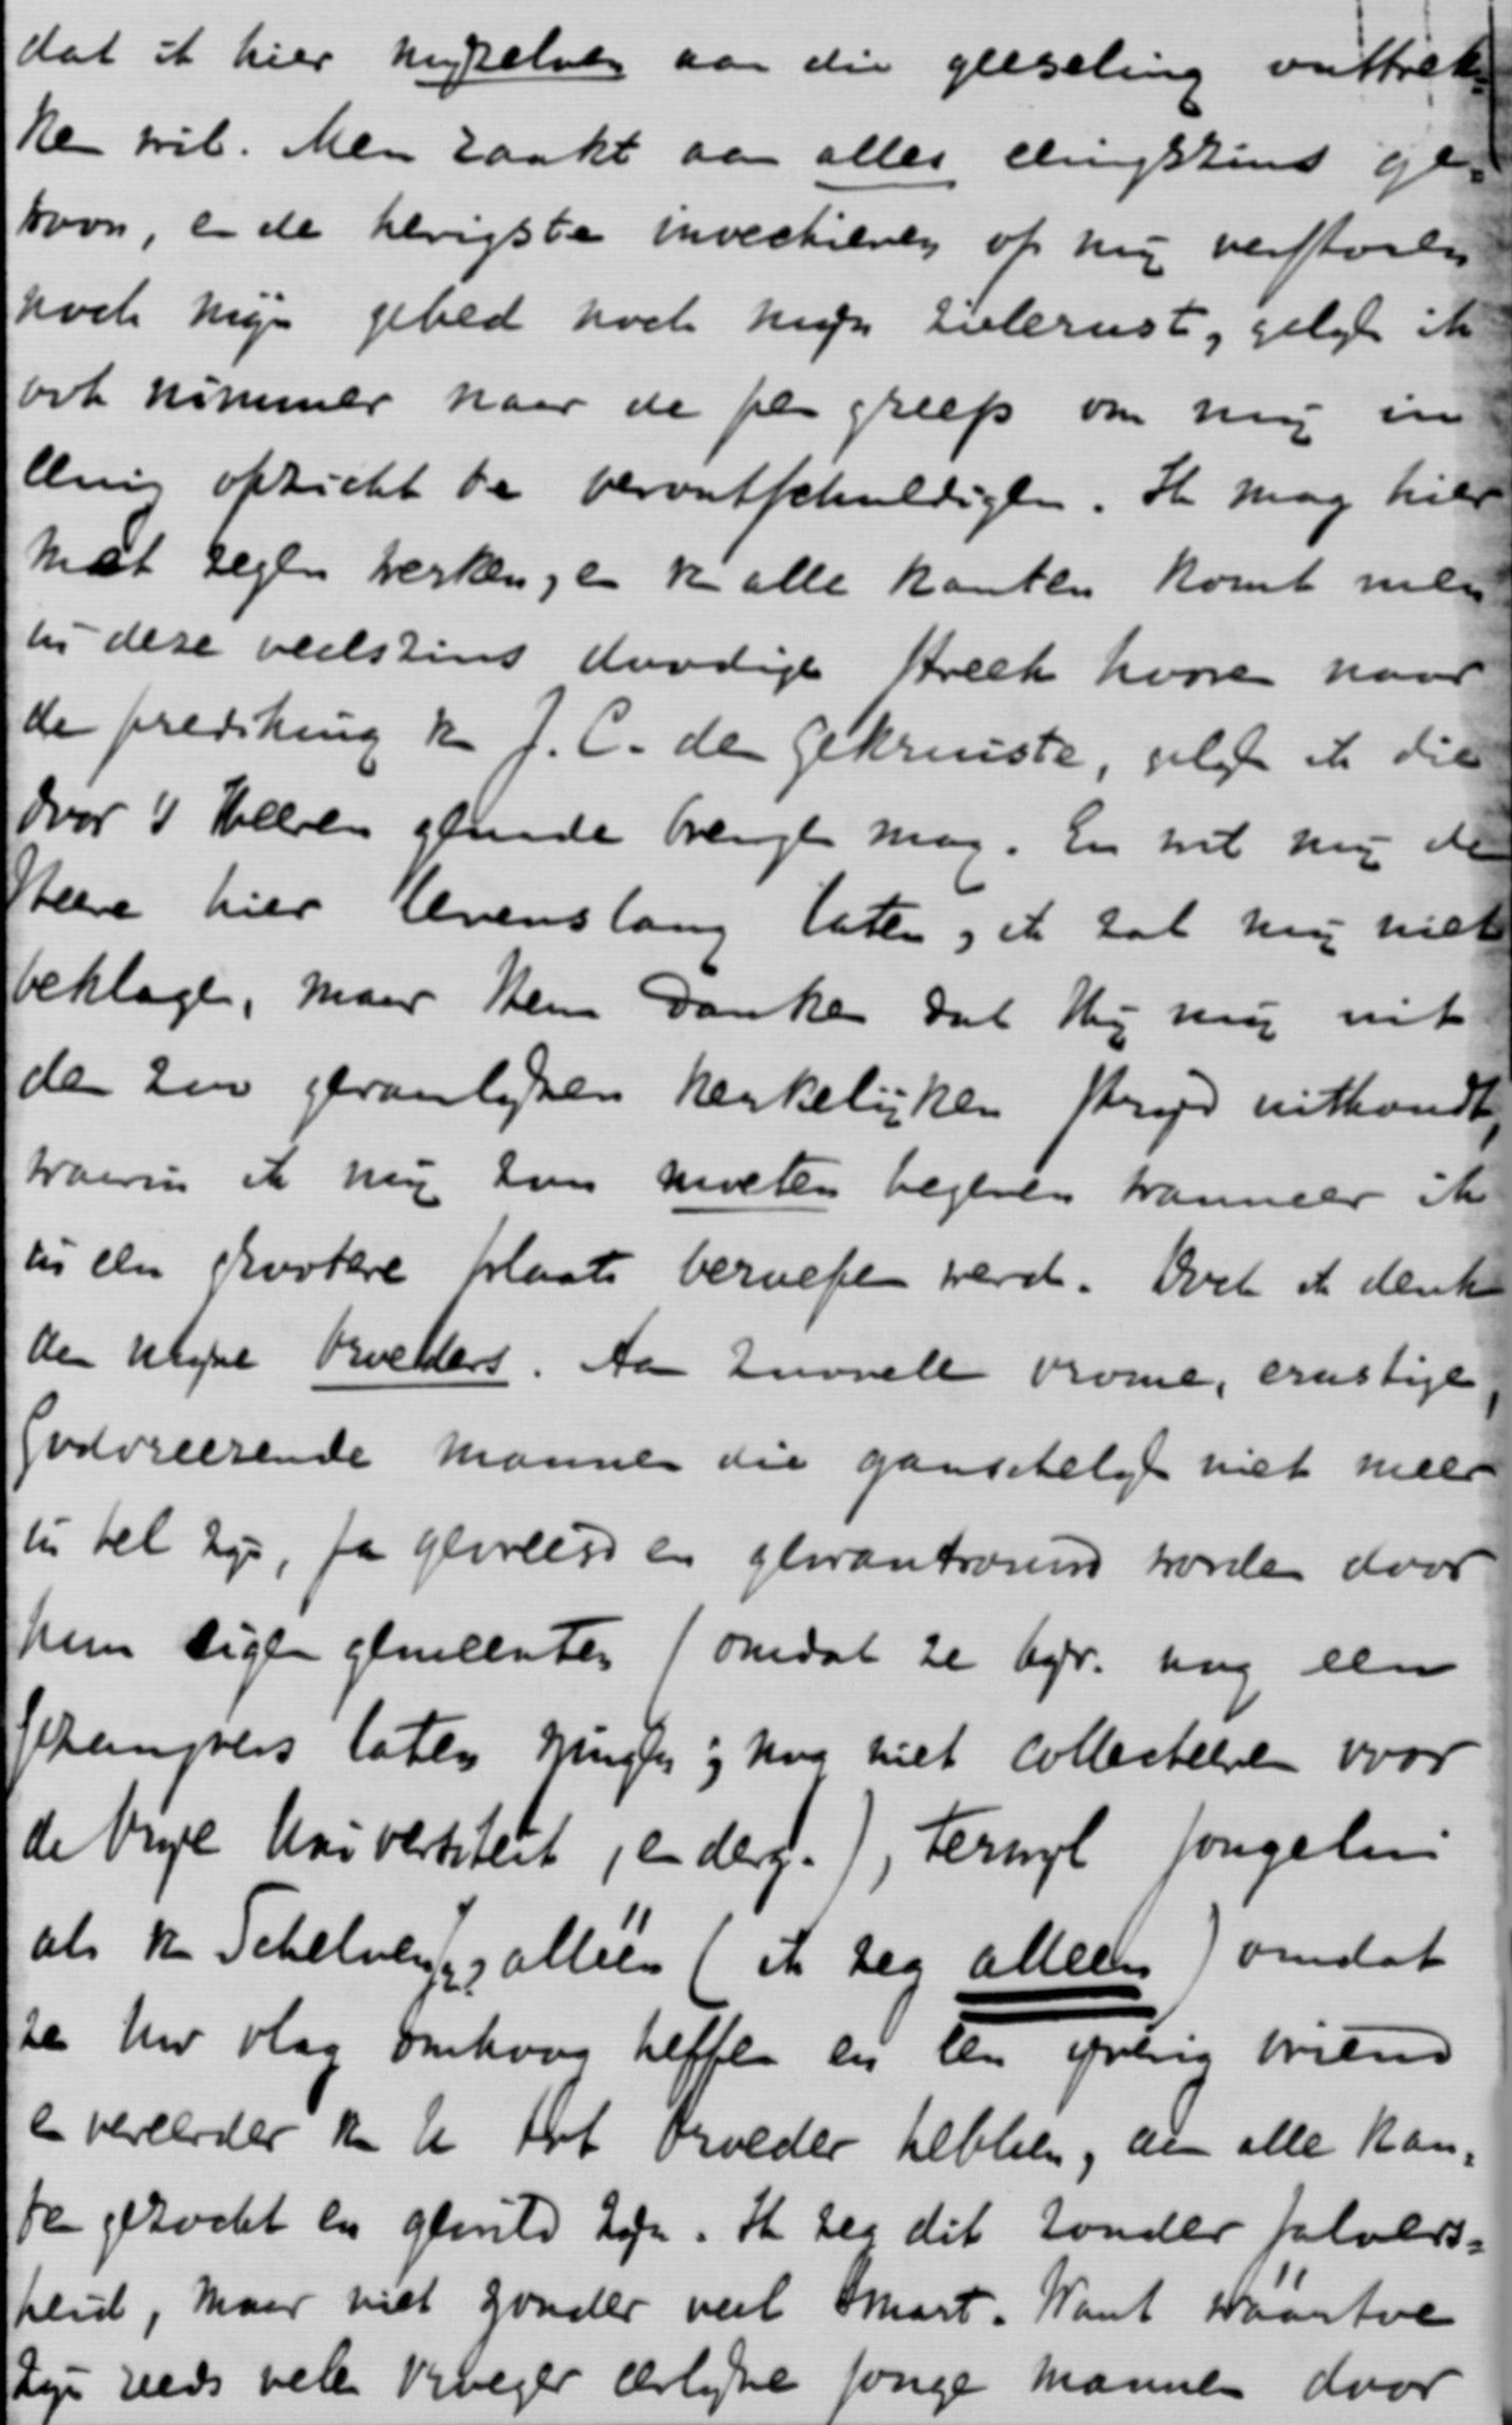 dat ik hier mijzelven aan die geeseling onttrek-
ken wil. Men raakt aan alles eenigszins ge-
woon, en de hevigste invectieven op mij verstoren
noch mijn gebed noch mijn zielerust, gelijk ik
ook nimmer naar de pen greep om mij in
eenig opzicht te verontschuldigen. Ik mag hier
met zegen werken, en v. alle kanten komt men
in deze veelszins doodige streek hooren naar
de prediking v. J. C. den gekruiste, gelijk ik die
door 's Heeren genade brengen mag. En wil mij de
Heere hier levenslang laten, ik zal mij niet
beklagen, maar Hem danken dat Hij mij uit
den zoo gevaarlijken kerkelijken strijd uithoudt,
waarin ik mij zou moeten begeven wanneer ik
in een grootere plaats beroepen werd. Doch ik denk
aan mijne broeders. Aan zoovele vrome, ernstige,
Godvreezende mannen die ganschelijk niet meer
in tel zijn, ja gevreesd en gewantrouwd worden door
hun eigen gemeenten (omdat ze bijv. nog een
gezangvers laten zingen, nog niet collecteeren voor
de Vrije Universiteit, en derg.), terwijl jongelui
als v. Schelven, alléén (ik zeg alleen) omdat
ze Uw vlag omhoog heffen en een ijverig vriend
en vereerder v. U tot broeder hebben, aan alle kan-
ten gezocht en gewild zijn. Ik zeg dit zonder jalouers-
heid, maar niet zonder veel smart. Want wáártoe
zijn reeds vele vroeger eerlijke jonge mannen door